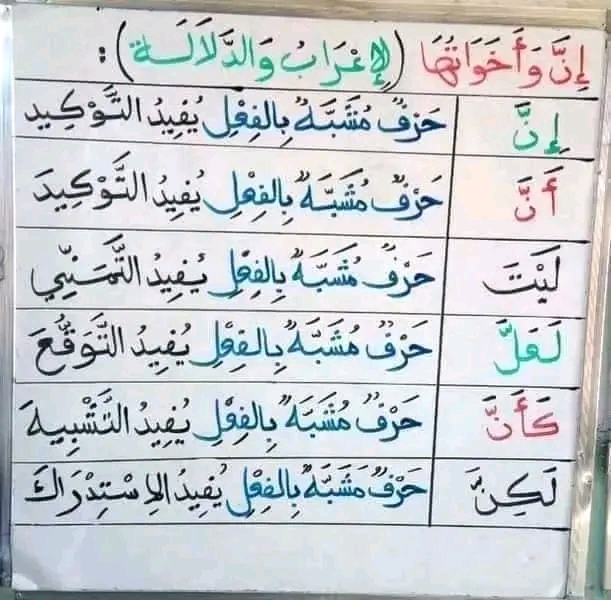 إِنَّ وَأَخَوَاتُهَا (الإِعْرَابُ وَالدَّلَالَة) :
إِنَّ حَرْفٌ مُشَبَّهٌ بِالفِعْلِ يُفِيدُ التَّوْكِيد
أَنَّ حَرْفٌ مُشَبَّهٌ بِالفِعْلِ يُفِيدُ التَّوْكِيدَ
لَيْتَ حَرْفٌ مُشَبَّهٌ بِالفِعْلِ يُفِيدُ التَّمَنِّي
لَعَلَّ حَرْفٌ مُشَبَّهٌ بِالفِعْلِ يُفِيدُ التَّوَقُّعَ
كَأَنَّ حَرْفٌ مُشَبَّهٌ بِالفِعْلِ يُفِيدُ التَّشْبِيهَ
لَكِنَّ حَرْفٌ مُشَبَّهٌ بِالفِعْلِ يُفِيدُ الِاسْتِدْرَاكَ